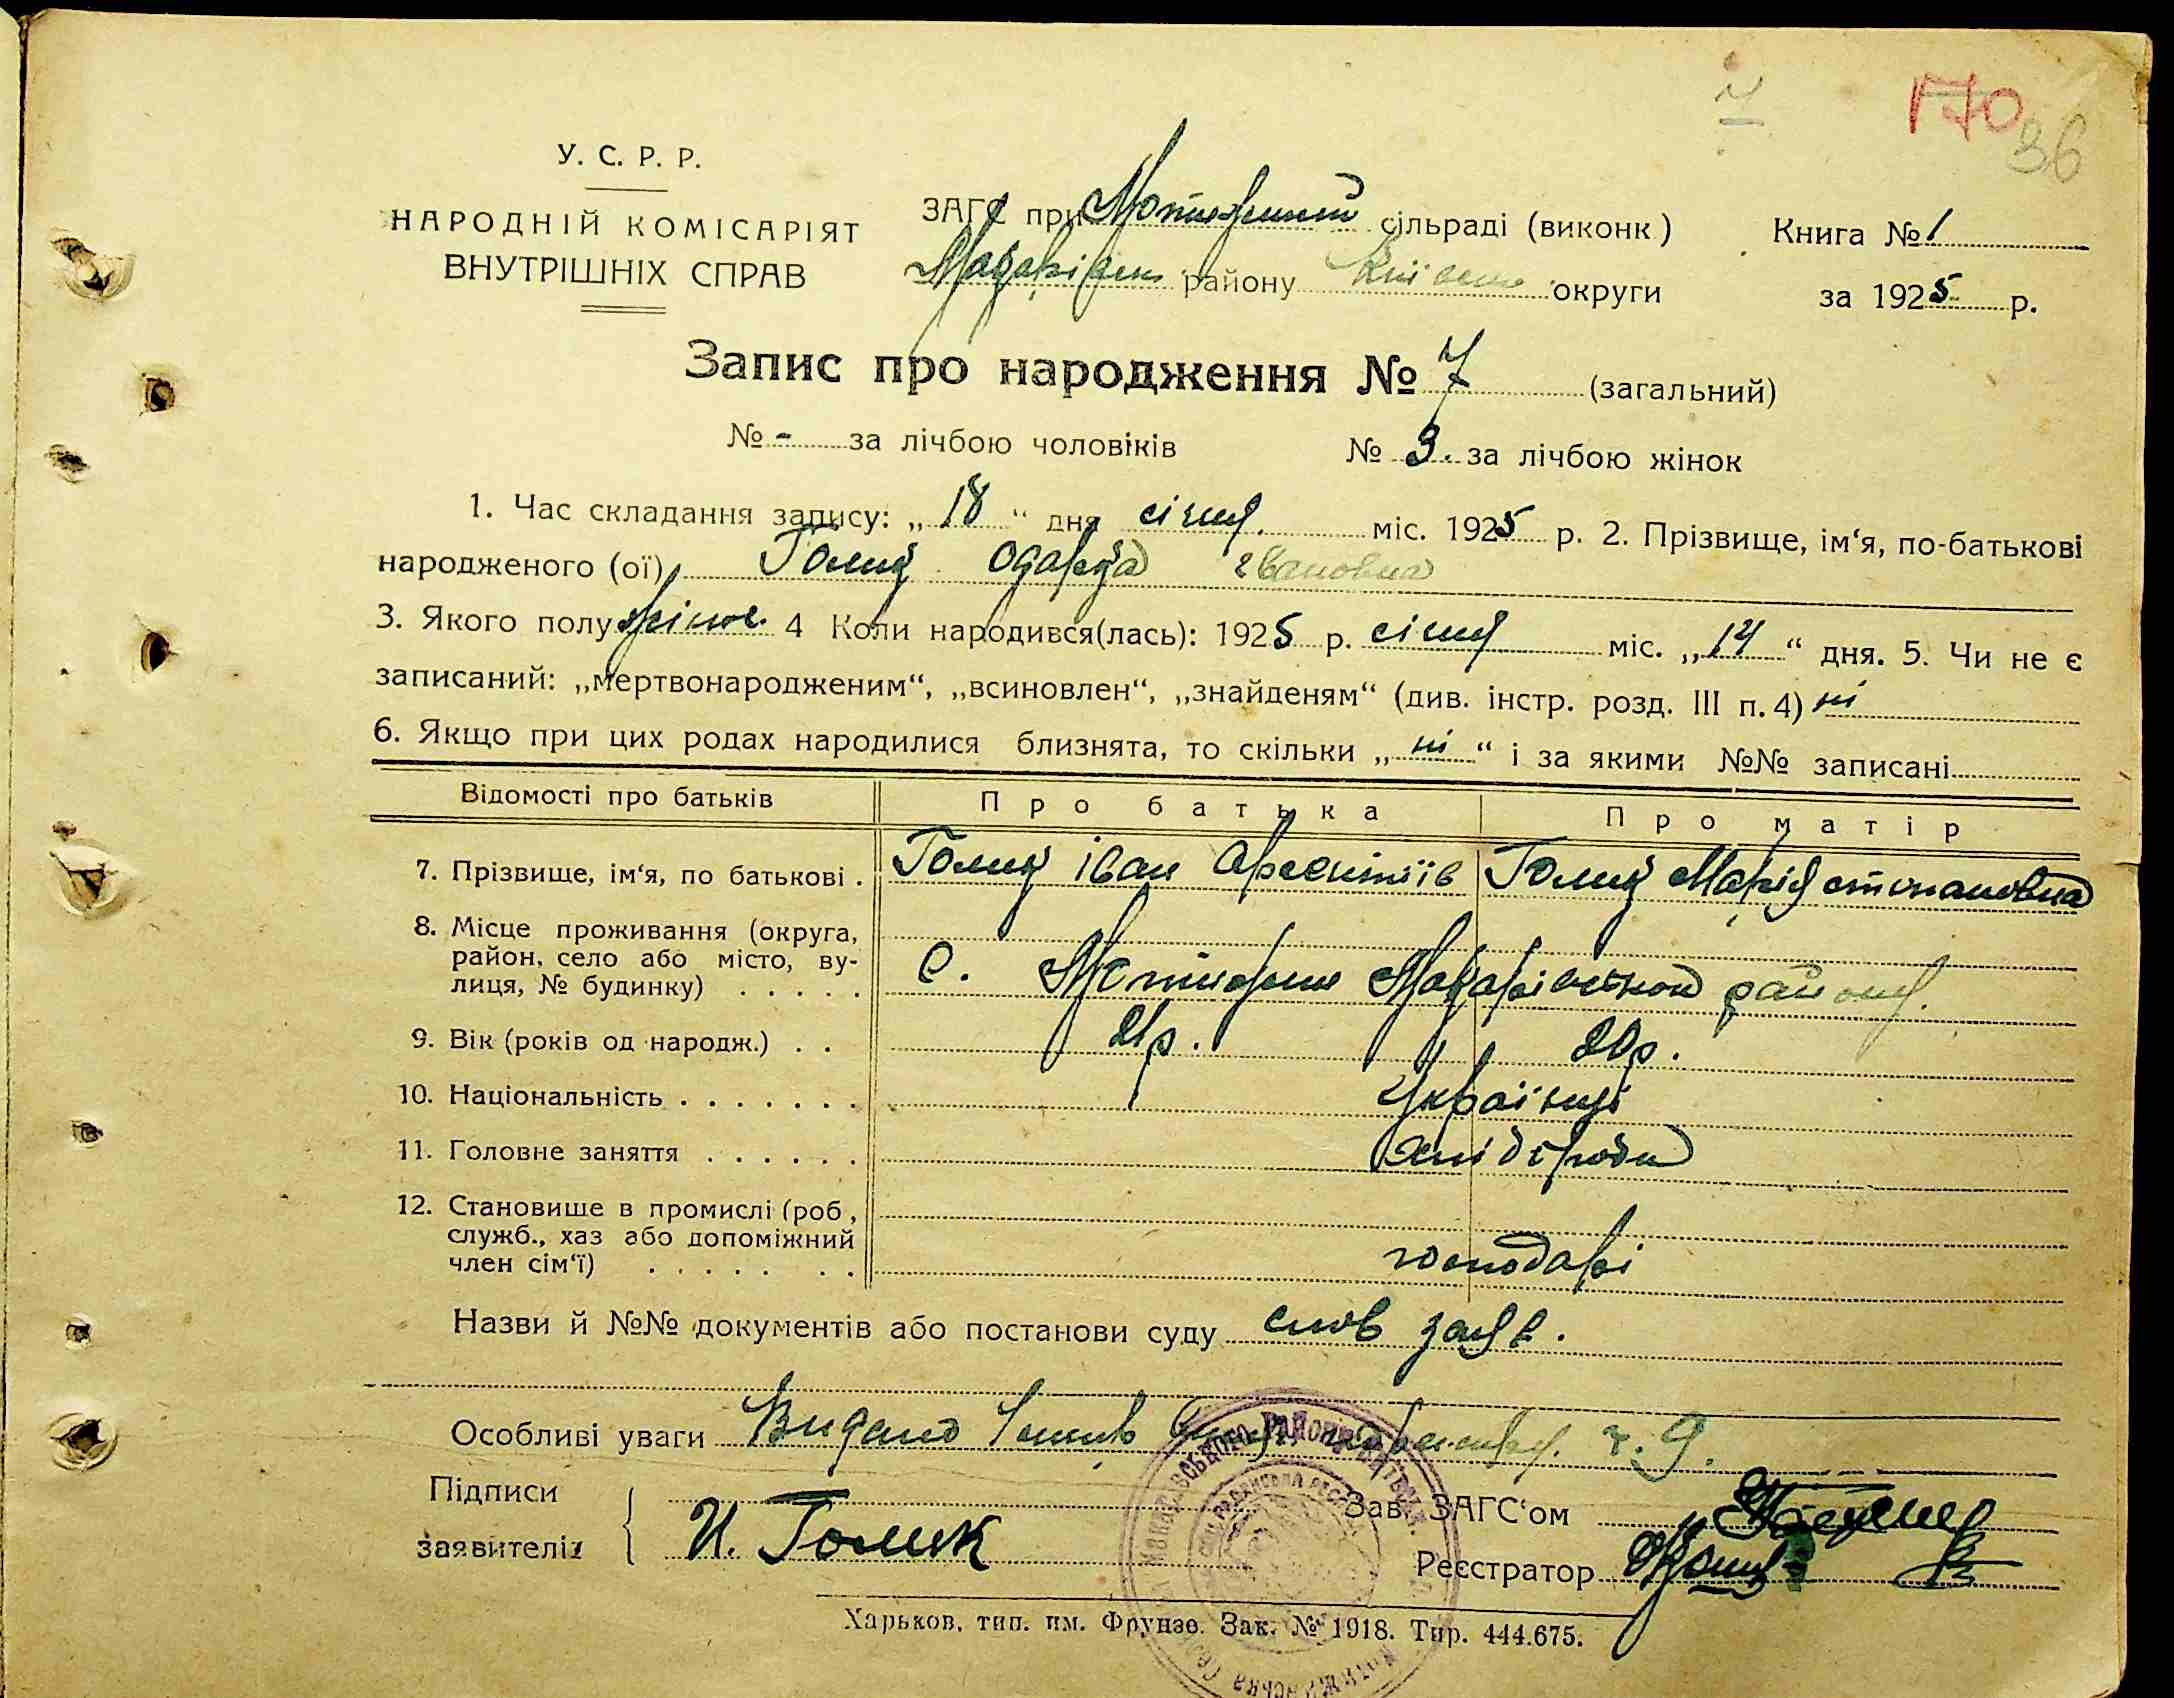 170
36
У. С. Р. Р.
НАРОДНІЙ КОМІСАРІЯТ
ВНУТРІШНІХ СПРАВ
ЗАГС при Мотижинській сільраді (виконк)
Макарівськ району Київськ округи
Книга № 1
за 1925 р.
Запис про народження № 7 (загальний)
№ - за лічбою чоловіків № 3. за лічбою жінок
1. Час складання запису: „18“ дня січня. міс. 1925 р. 2. Прізвище, ім‘я, по-батькові
народженого (ої) Голик Одарка Івановна
3. Якого полу жіноч. 4 Коли народився(лась): 1925 р. січня міс. „14“ дня. 5. Чи не є
записаний: „мертвонародженим“, „всиновлен“, „знайденям“ (див. інстр. розд. III п. 4) ні
6. Якщо при цих родах народилися близнята, то скільки „ні“ і за якими №№ записані
Відомості про батьків Про батька Про матір
7. Прізвище, ім‘я, по батькові . Голик Іван Арсентіїв Голик Марія Степановна
8. Місце проживання (округа,
район, село або місто, ву-
лиця, № будинку) . . . . . с. Мотижин Макарівського району.
9. Вік (років од народж.) . . 21 р. 20 р.
10. Національність . . . . . . . Українці
11. Головне заняття . . . . . . хліброби
12. Становише в промислі (роб,
служб., хаз або допоміжний
член сім‘ї) . . . . . . . господарі
Назви й №№ документів або постанови суду слов заяв.
Особливі уваги Видано ч. 9.
Підписи
заявителів И. Голик
Зав. ЗАГС‘ом
Реєстратор
Харьков, тип. им. Фрунзе. Зак. № 1918. Тир. 444.675.